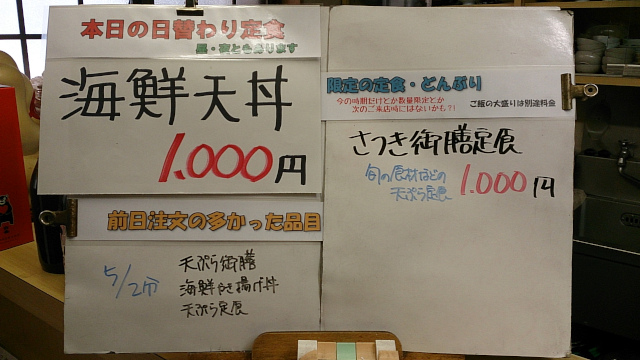 本日の日替わり定食
昼・夜ともあります
海鮮天丼
1,000円
前日注文の多かった品目
5/2分
天ぷら御膳
海鮮かき揚げ丼
天ぷら定食
限定の定食・どんぶり
今の時期だけとか数量限定とか
次のご来店時にはないかも?!
ご飯の大盛りは別途料金
さつき御膳定食
旬の食材などの
天ぷら定食
1,000円